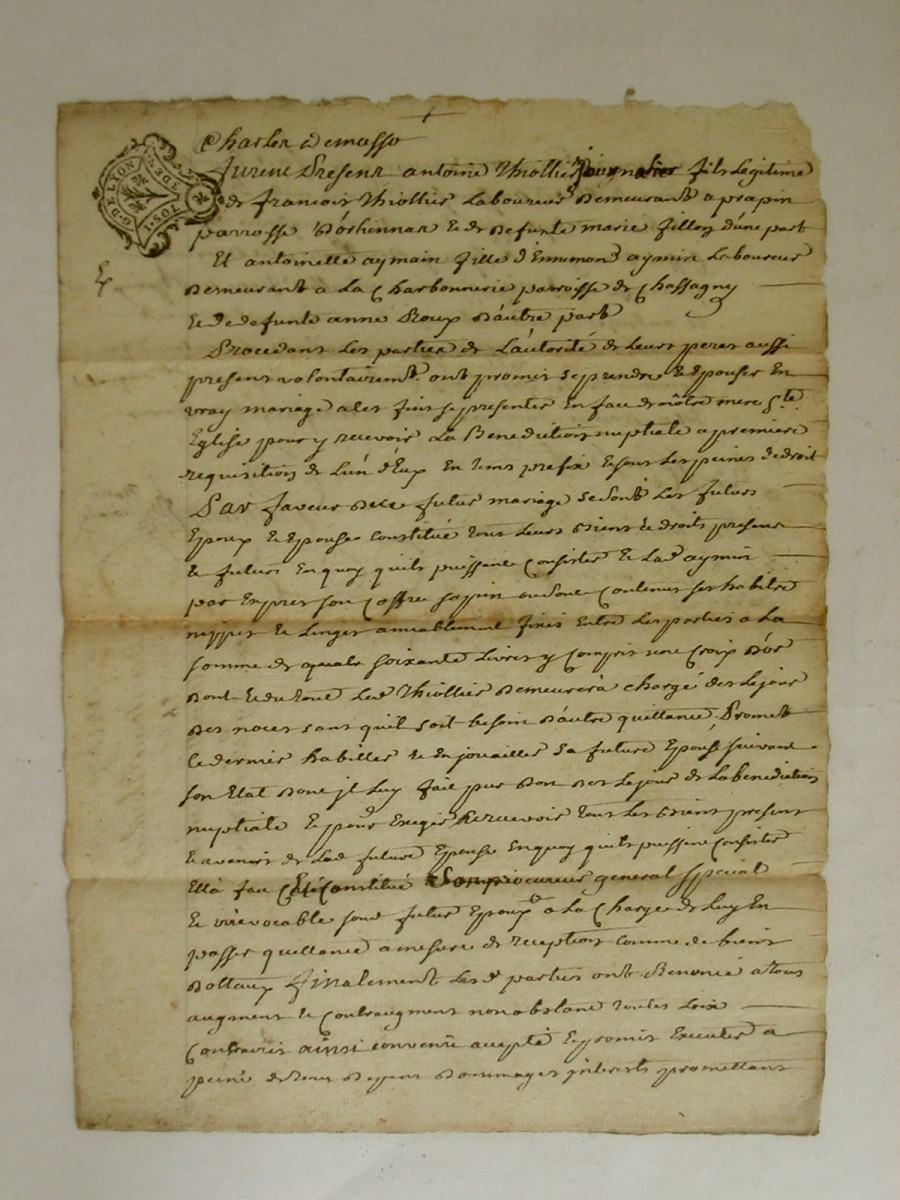 G. DE LYON
1. SOL
Charles Demasso
furent Presens antoine Thiollier journalier fils Legitime
de francois Thiollier Laboureur Demeurant a prapin
parroisse D'orliennas & de Defunte marie fillon d'une part
Et antoinette aymain fille d'Ennemond aymin Laboureur
Demeurant a La Charbonnerie parroisse de Chassagny
& de defunte anne Roux D'autre part
Procedans Les parties de L'autorité de Leurs peres aussi
presens volontairemt. ont promis se prendre & Epouser En
vray mariage a les fins se presenter En face de nôtre mere Ste.
Eglise pour y recevoir La Benediction nuptiale a premiere
requisition de L'un d'Eux En tems prefix & sous Les peines de droit
Par faveur de ce futur mariage se sont Les futurs
Epoux & Epouse Constitué tous Leurs biens & droits presens
& futurs En quoy qu'ils puissent Consister & Lad. aymin
par Exprès son Coffre sappin Contenus ses habits
nippes & Linges amiablement fixés Entre Les parties a La
somme de quatre soixante Livres y Compris une Croix D'or
Dont & du tout Led Thiollier Demeurera Chargé des Le jour
Des noces sans qu'il soit besoin D'autre quittance, Promet
Ce dernier habiller & Enjouailler sa future Epouse suivant
son Etat Dont jl Luy fait pur Don Des Le jour de La benediction
nuptiale & pour Exiger & recevoir tous Les biens presens
& avenirs de Lad future Epouse En quoy qu'ils puissent Consister
Ella fait & Constitué son procureur general special
& irrevocable sond futur Epoux a La Charge de Luy En
passer quittance a mesure de reception Comme de biens
Dottaux finalement Lesd parties ont Renoncé a tous
augment & Contraugment nonobstant toutes Loix
Contraires ainsi convenû accepté & promis Executer a
peine de tous Depens Dommages jnterets promettant